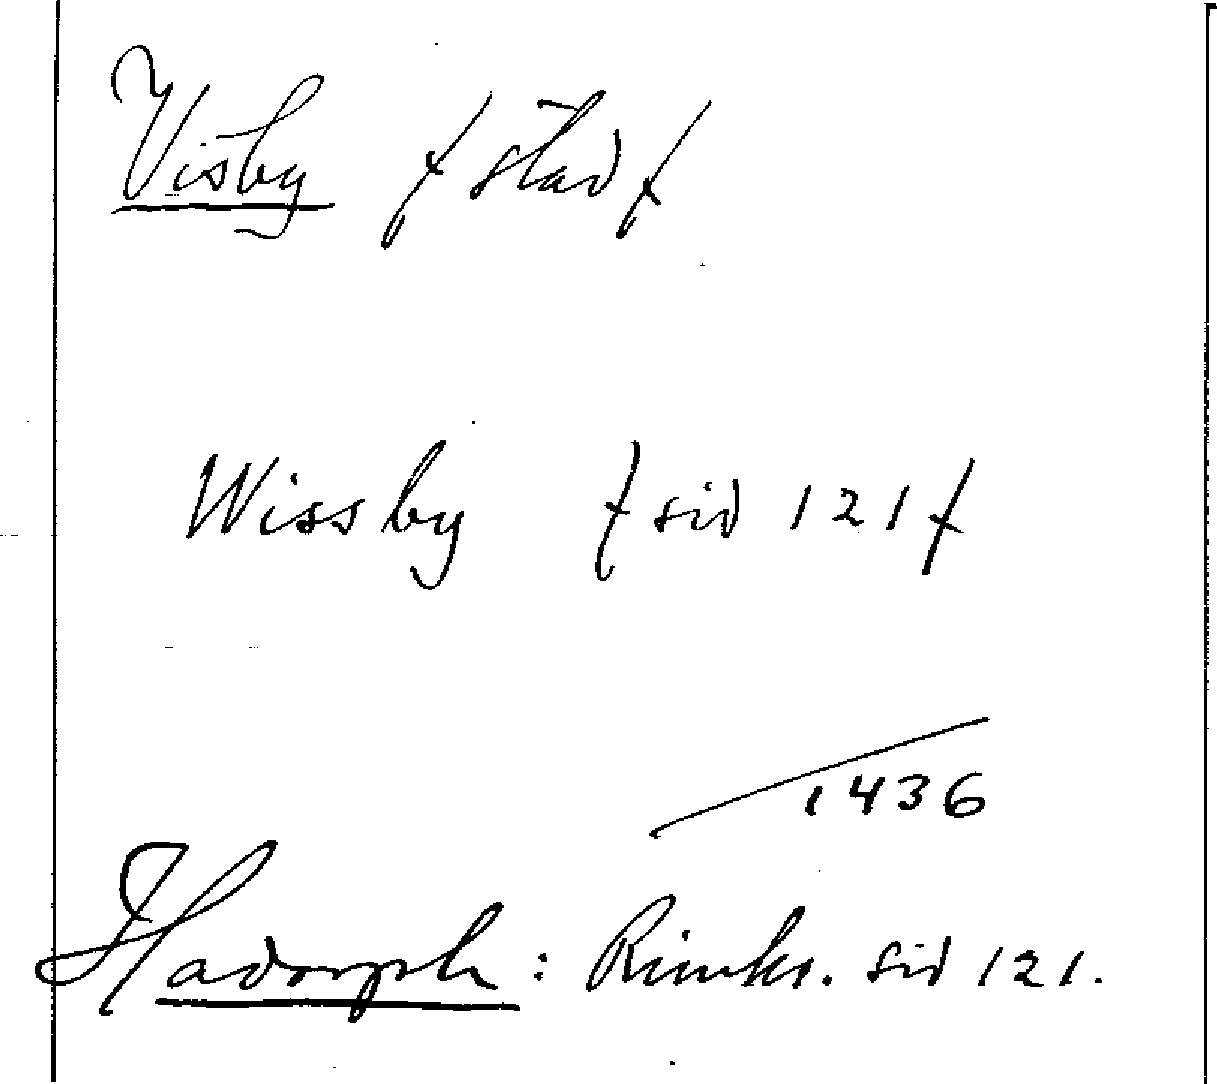 Visby (stad)
Wissby (sid 121)
1436
Hadorph: Rimkr. sid 121.